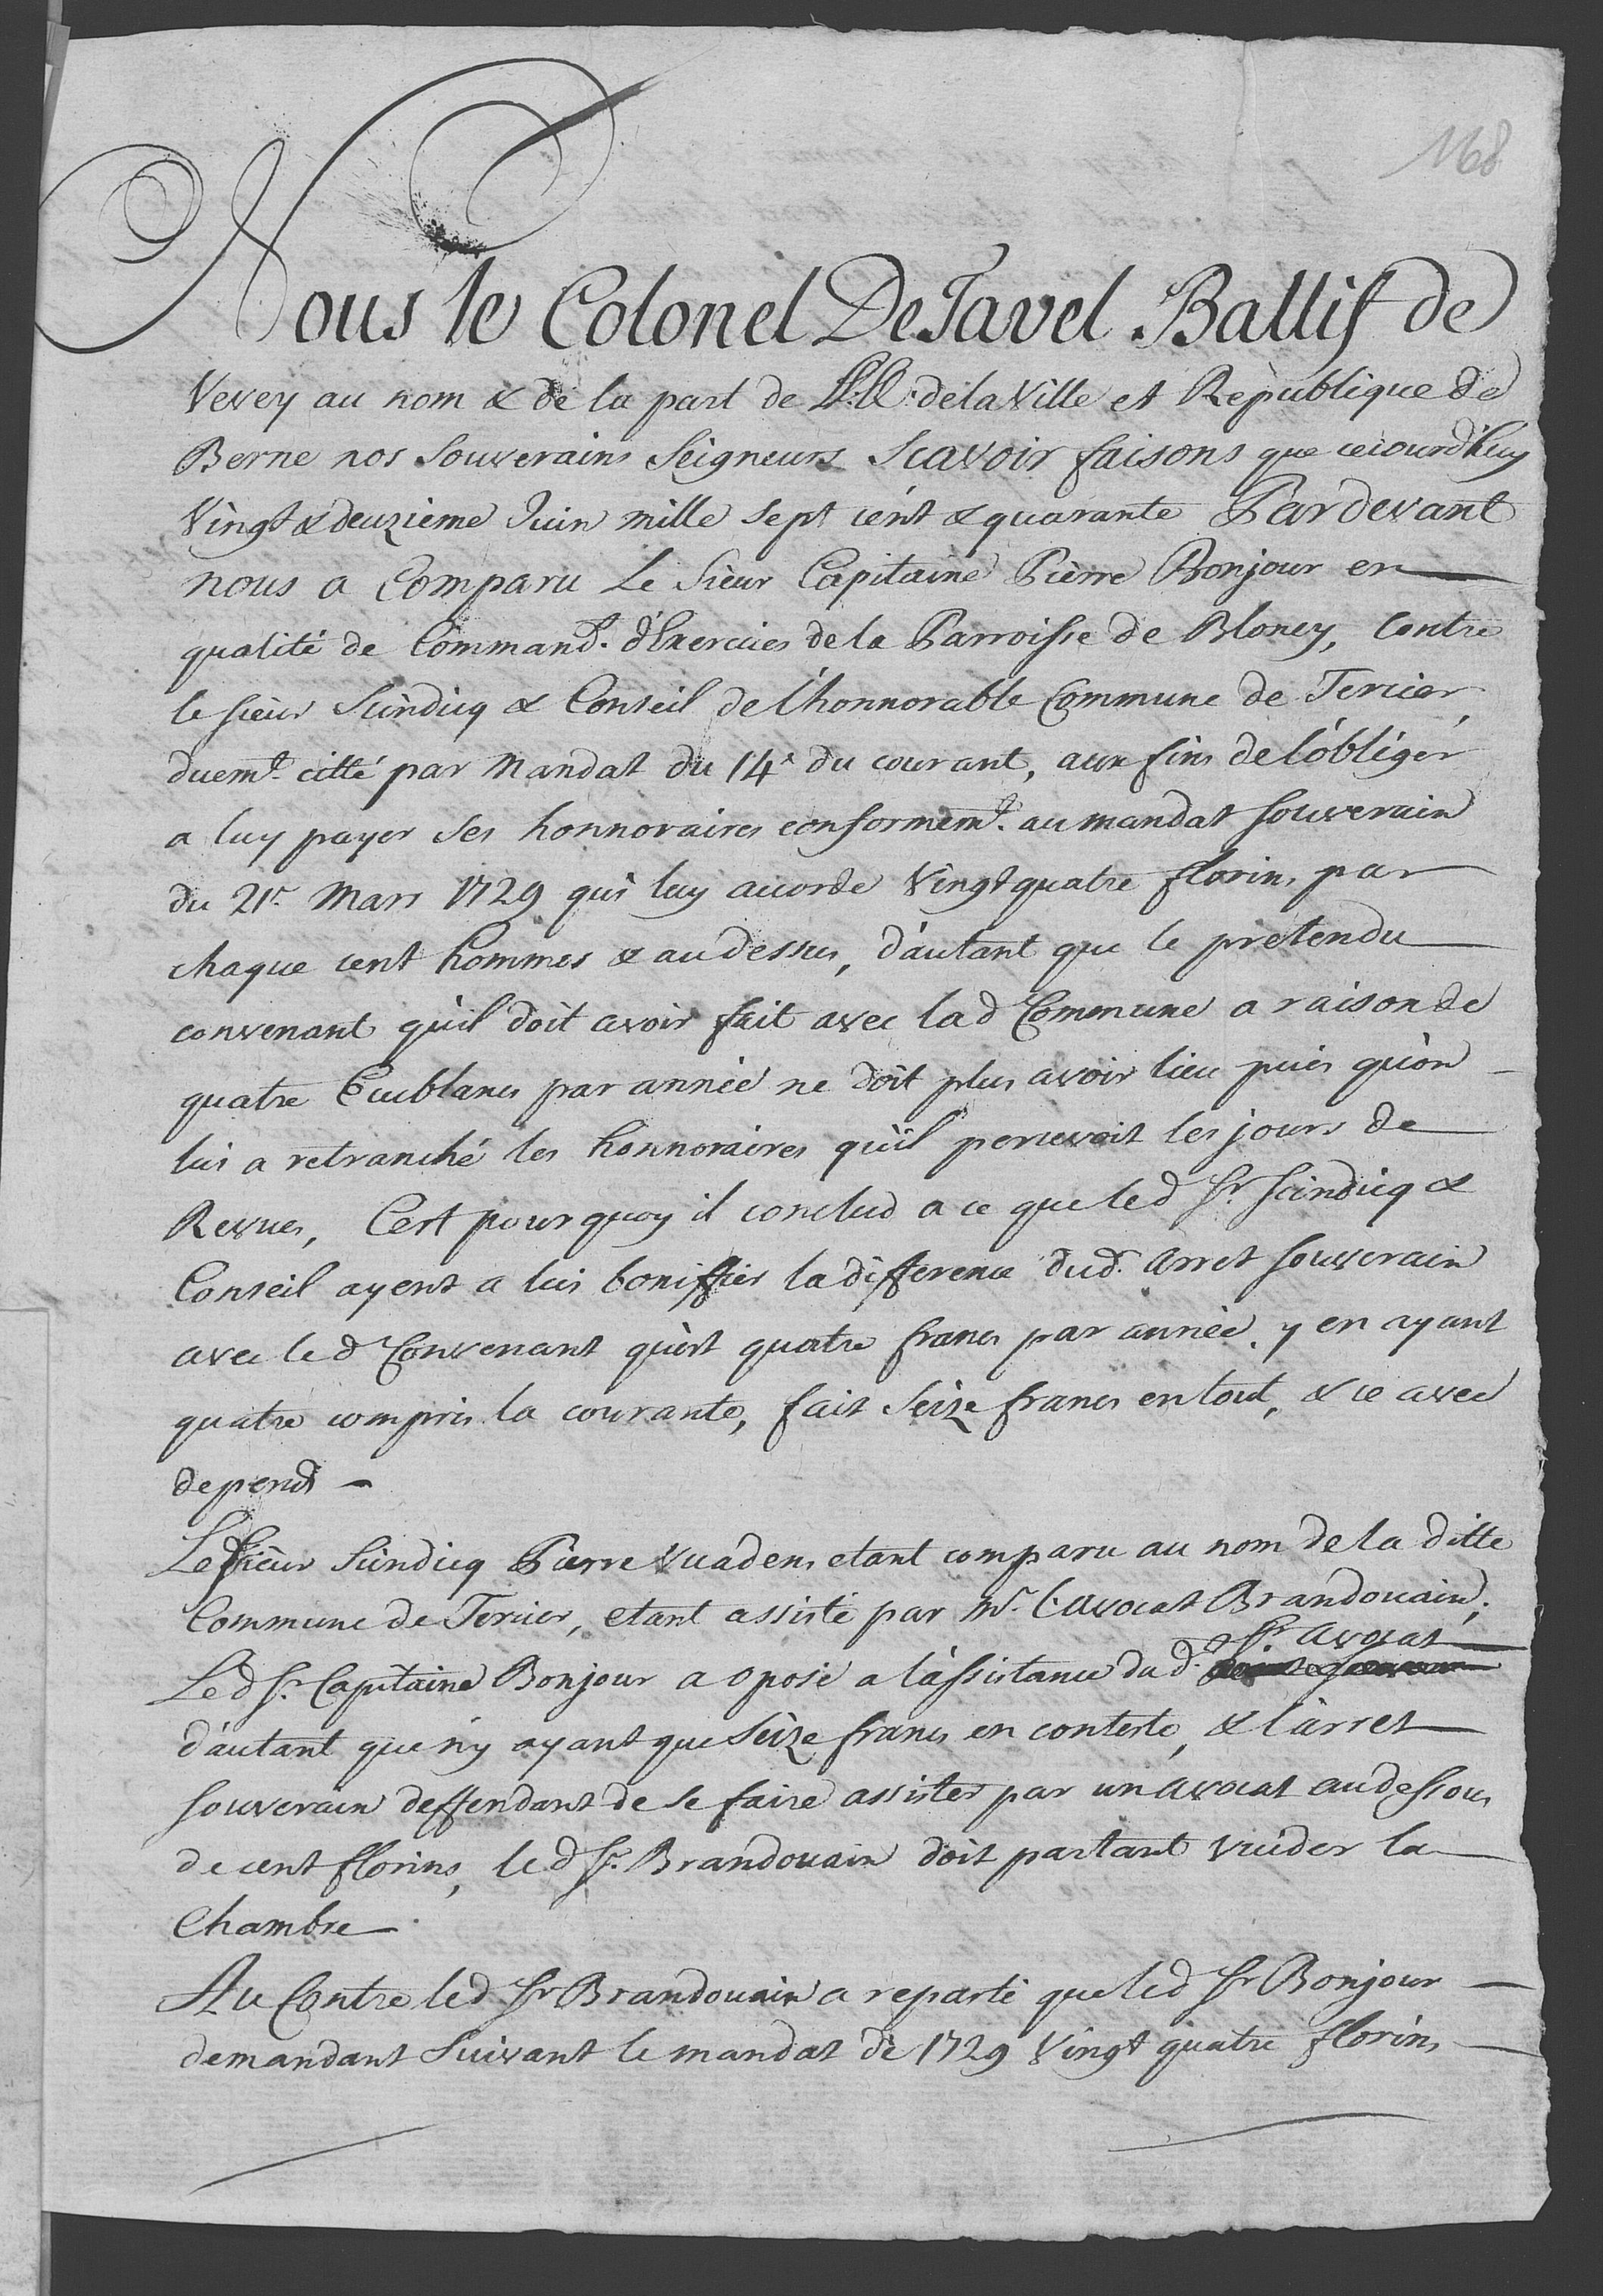 168
Nous le Colonel De Tavel Ballif de
Vevey au nom & de la part de LL: EE: de la Ville et République de
Berne nos Souverains Seigneurs Scavoir faisons que cejourd'huy
Vingt & deuzième Juin mille Sept cént & quarante Pardevant
nous a Comparu Le Sieur Capitaine Pierre Bonjour en
qualité de Command.t d'Exercices de la Parroisse de Bloney, Contre
le sieur Scindicq & Conseil de l'honnorable Commune de Tercier,
duem.t citté par Mandat du 14.e du courant, aux fins de l'obliger
a luy payer ses honnoraires conformem.t au mandat souverain
du 21.e Mars 1729 qui luy accorde Vingt quatre florins par
chaque cent hommes & au dessus, d'autant que le pretendu
convenant qu'il doit avoir fait avec lad Commune a raison de
quatre Ecublancs par année ne doit plus avoir lieu puis qu'on
lui a retranché les honnoraires qu'il percevoit les jours de
Revues, C'est pourquoy il conclud a ce que led S.r Scindicq &
Conseil ayent a lui boniffier la difference dud. arret souverain
avec led Convenant qu'est quatre francs par année, y en ayant
quatre compris la courante, fait Seize francs en tout, & ce avec
depends
Led Sieur Scindicq Pierre Vuadens etant comparu au nom de la ditte
Commune de Tercier, etant assisté par M.r l'avocat Brandouain,
S.r avocat
Led S.r Capitaine Bonjour a oposé a l'assistance dud.
d'autant que n'y ayant que Seize francs en conteste, & l'arret
souverain deffendant de se faire assister par un avocat au dessous
de cent florins, led S.r Brandouain doit partant vuider la
Chambre.
Au Contre led S.r Brandouain a reparti que led S.r Bonjour
demandant Suivant le mandat de 1729 Vingt quatre florins